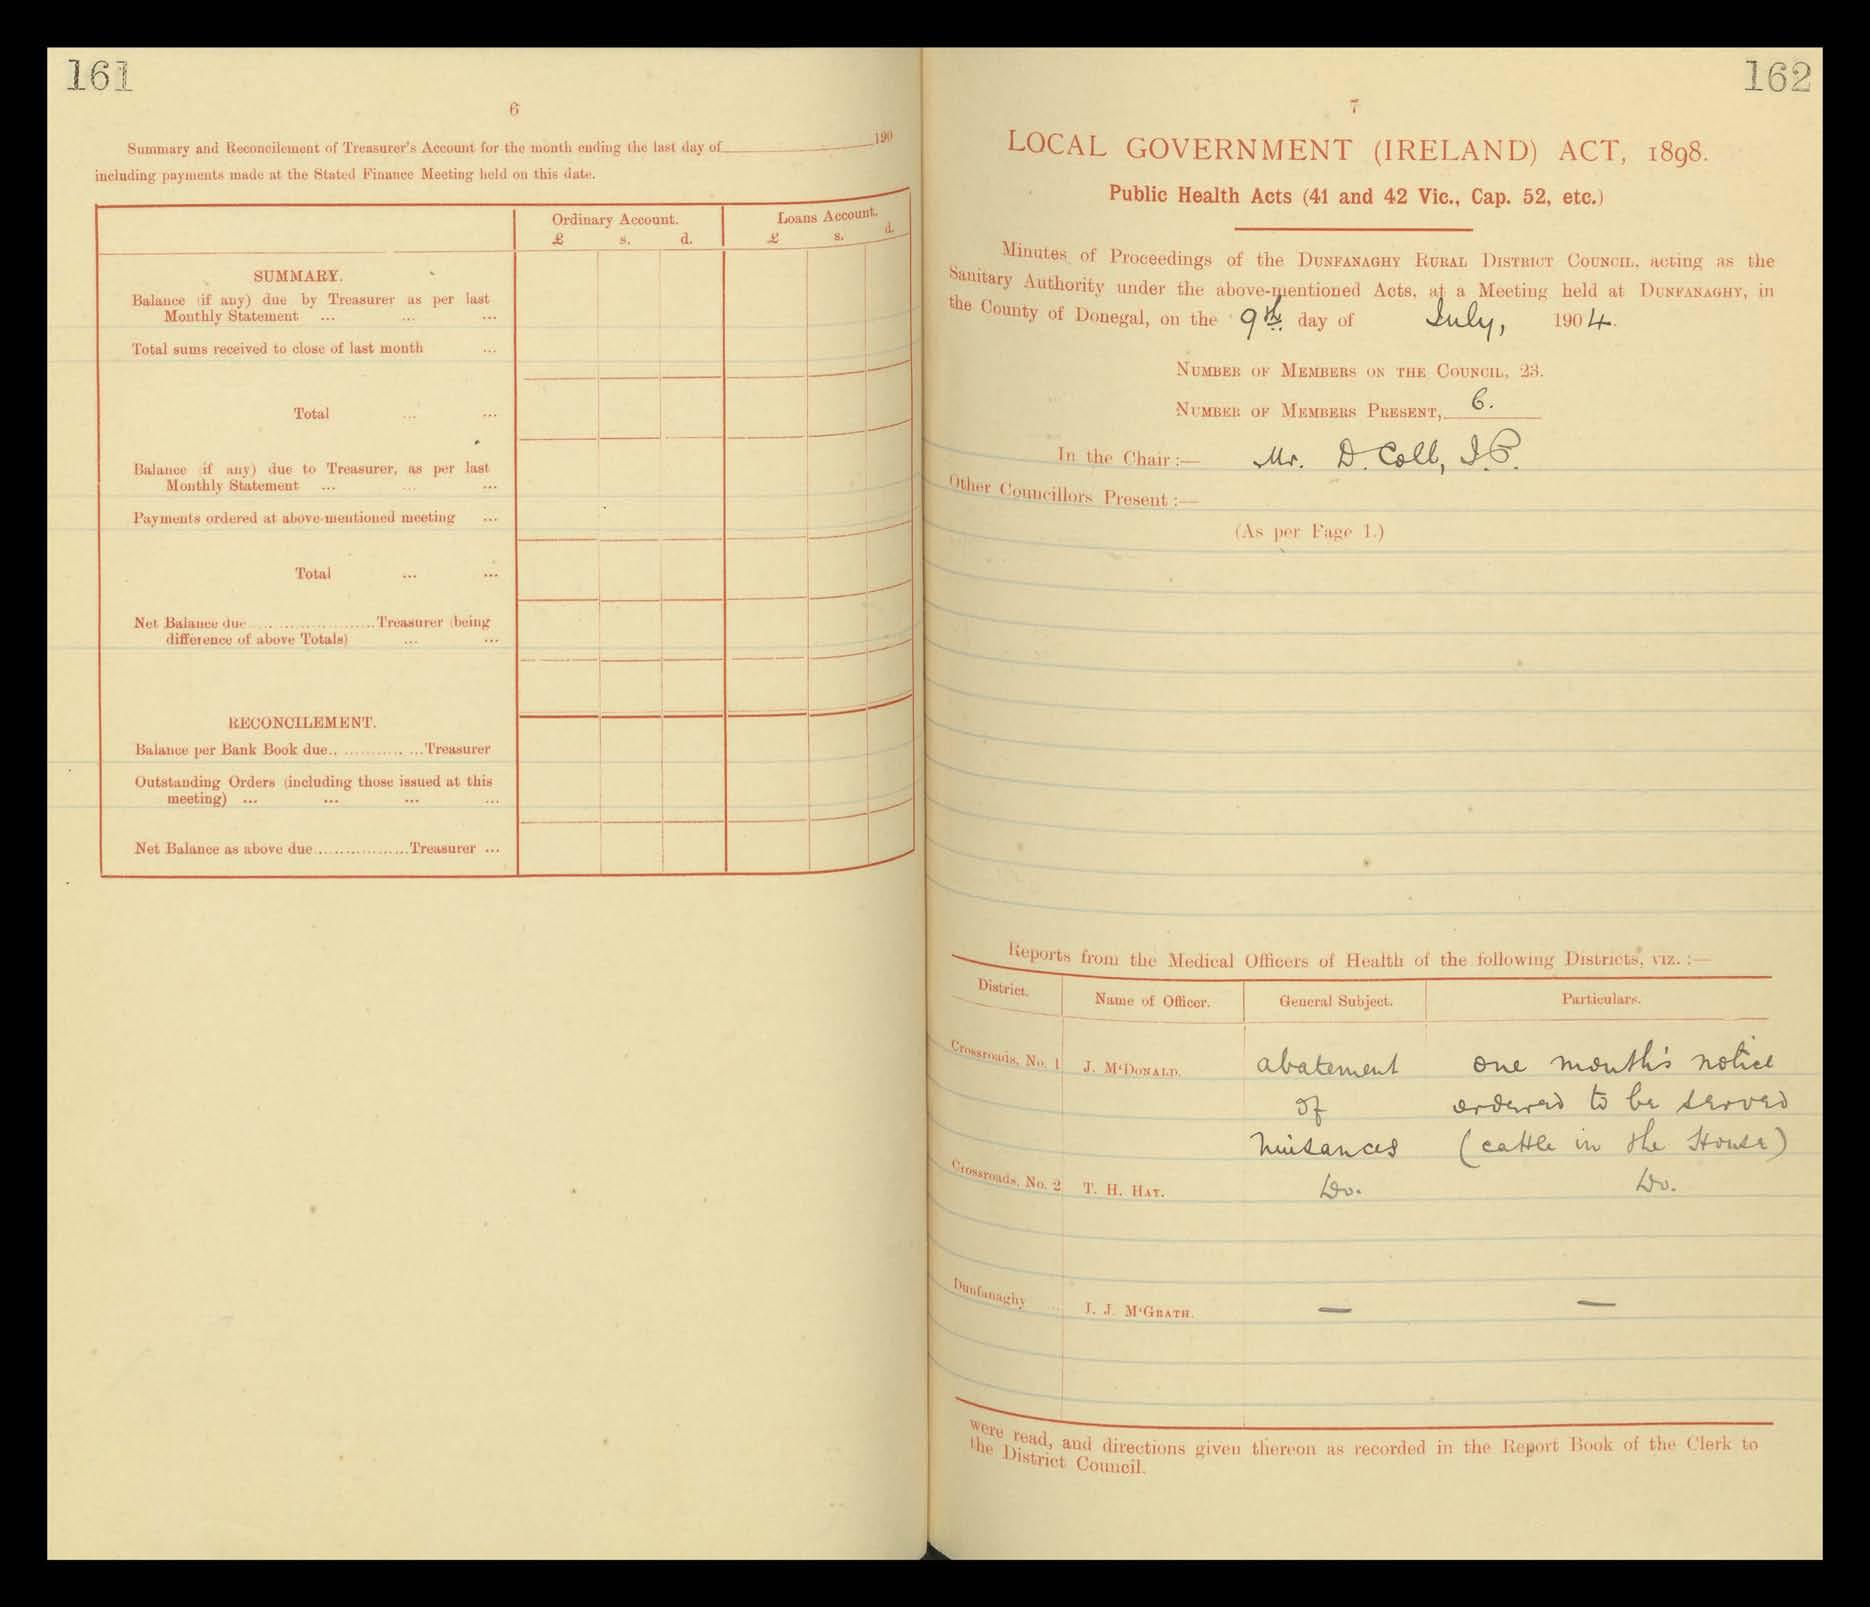 161
6
Summary and Reconcilement of Treasurer's Account for the month ending the last day of 190
including payments made at the Stated Finance Meeting held on this date.
Ordinary Account. Loans Account.
£ s. d. £ s. d.
SUMMARY.
Balance (if any) due by Treasurer as per last
Monthly Statement ... ... ...
Total sums received to close of last month ...
Total ... ...
Balance (if any) due to Treasurer, as per last
Monthly Statement ... ... ...
Payments ordered at above-mentioned meeting ...
Total ... ...
Net Balance due ........................ Treasurer (being
difference of above Totals) ... ...
RECONCILEMENT.
Balance per Bank Book due.. ............. ...Treasurer
Outstanding Orders (including those issued at this
meeting) ... ... ... ...
Net Balance as above due..................Treasurer ...
162
7
LOCAL GOVERNMENT (IRELAND) ACT, 1898.
Public Health Acts (41 and 42 Vic., Cap. 52, etc.)
Minutes of Proceedings of the Dunfanaghy Rural District Council, acting as the
Sanitary Authority under the above-mentioned Acts, at a Meeting held at Dunfanaghy, in
the County of Donegal, on the 9th. day of July, 1904.
Number of Members on the Council, 23.
Number of Members Present, 6.
In the Chair :— Mr. D. Coll, J.P.
Other Councillors Present :—
(As per Page 1.)
Reports from the Medical Officers of Health of the following Districts, viz. :—
District. Name of Officer. General Subject. Particulars.
Crossroads, No. 1 J. M'Donald. abatement one month's notice
of ordered to be served
nuisances (cattle in the House)
Crossroads, No. 2 T. H. Hay. Do. Do.
Dunfanaghy ... J. J. M'Grath. — —
were read, and directions given thereon as recorded in the Report Book of the Clerk to
the District Council.